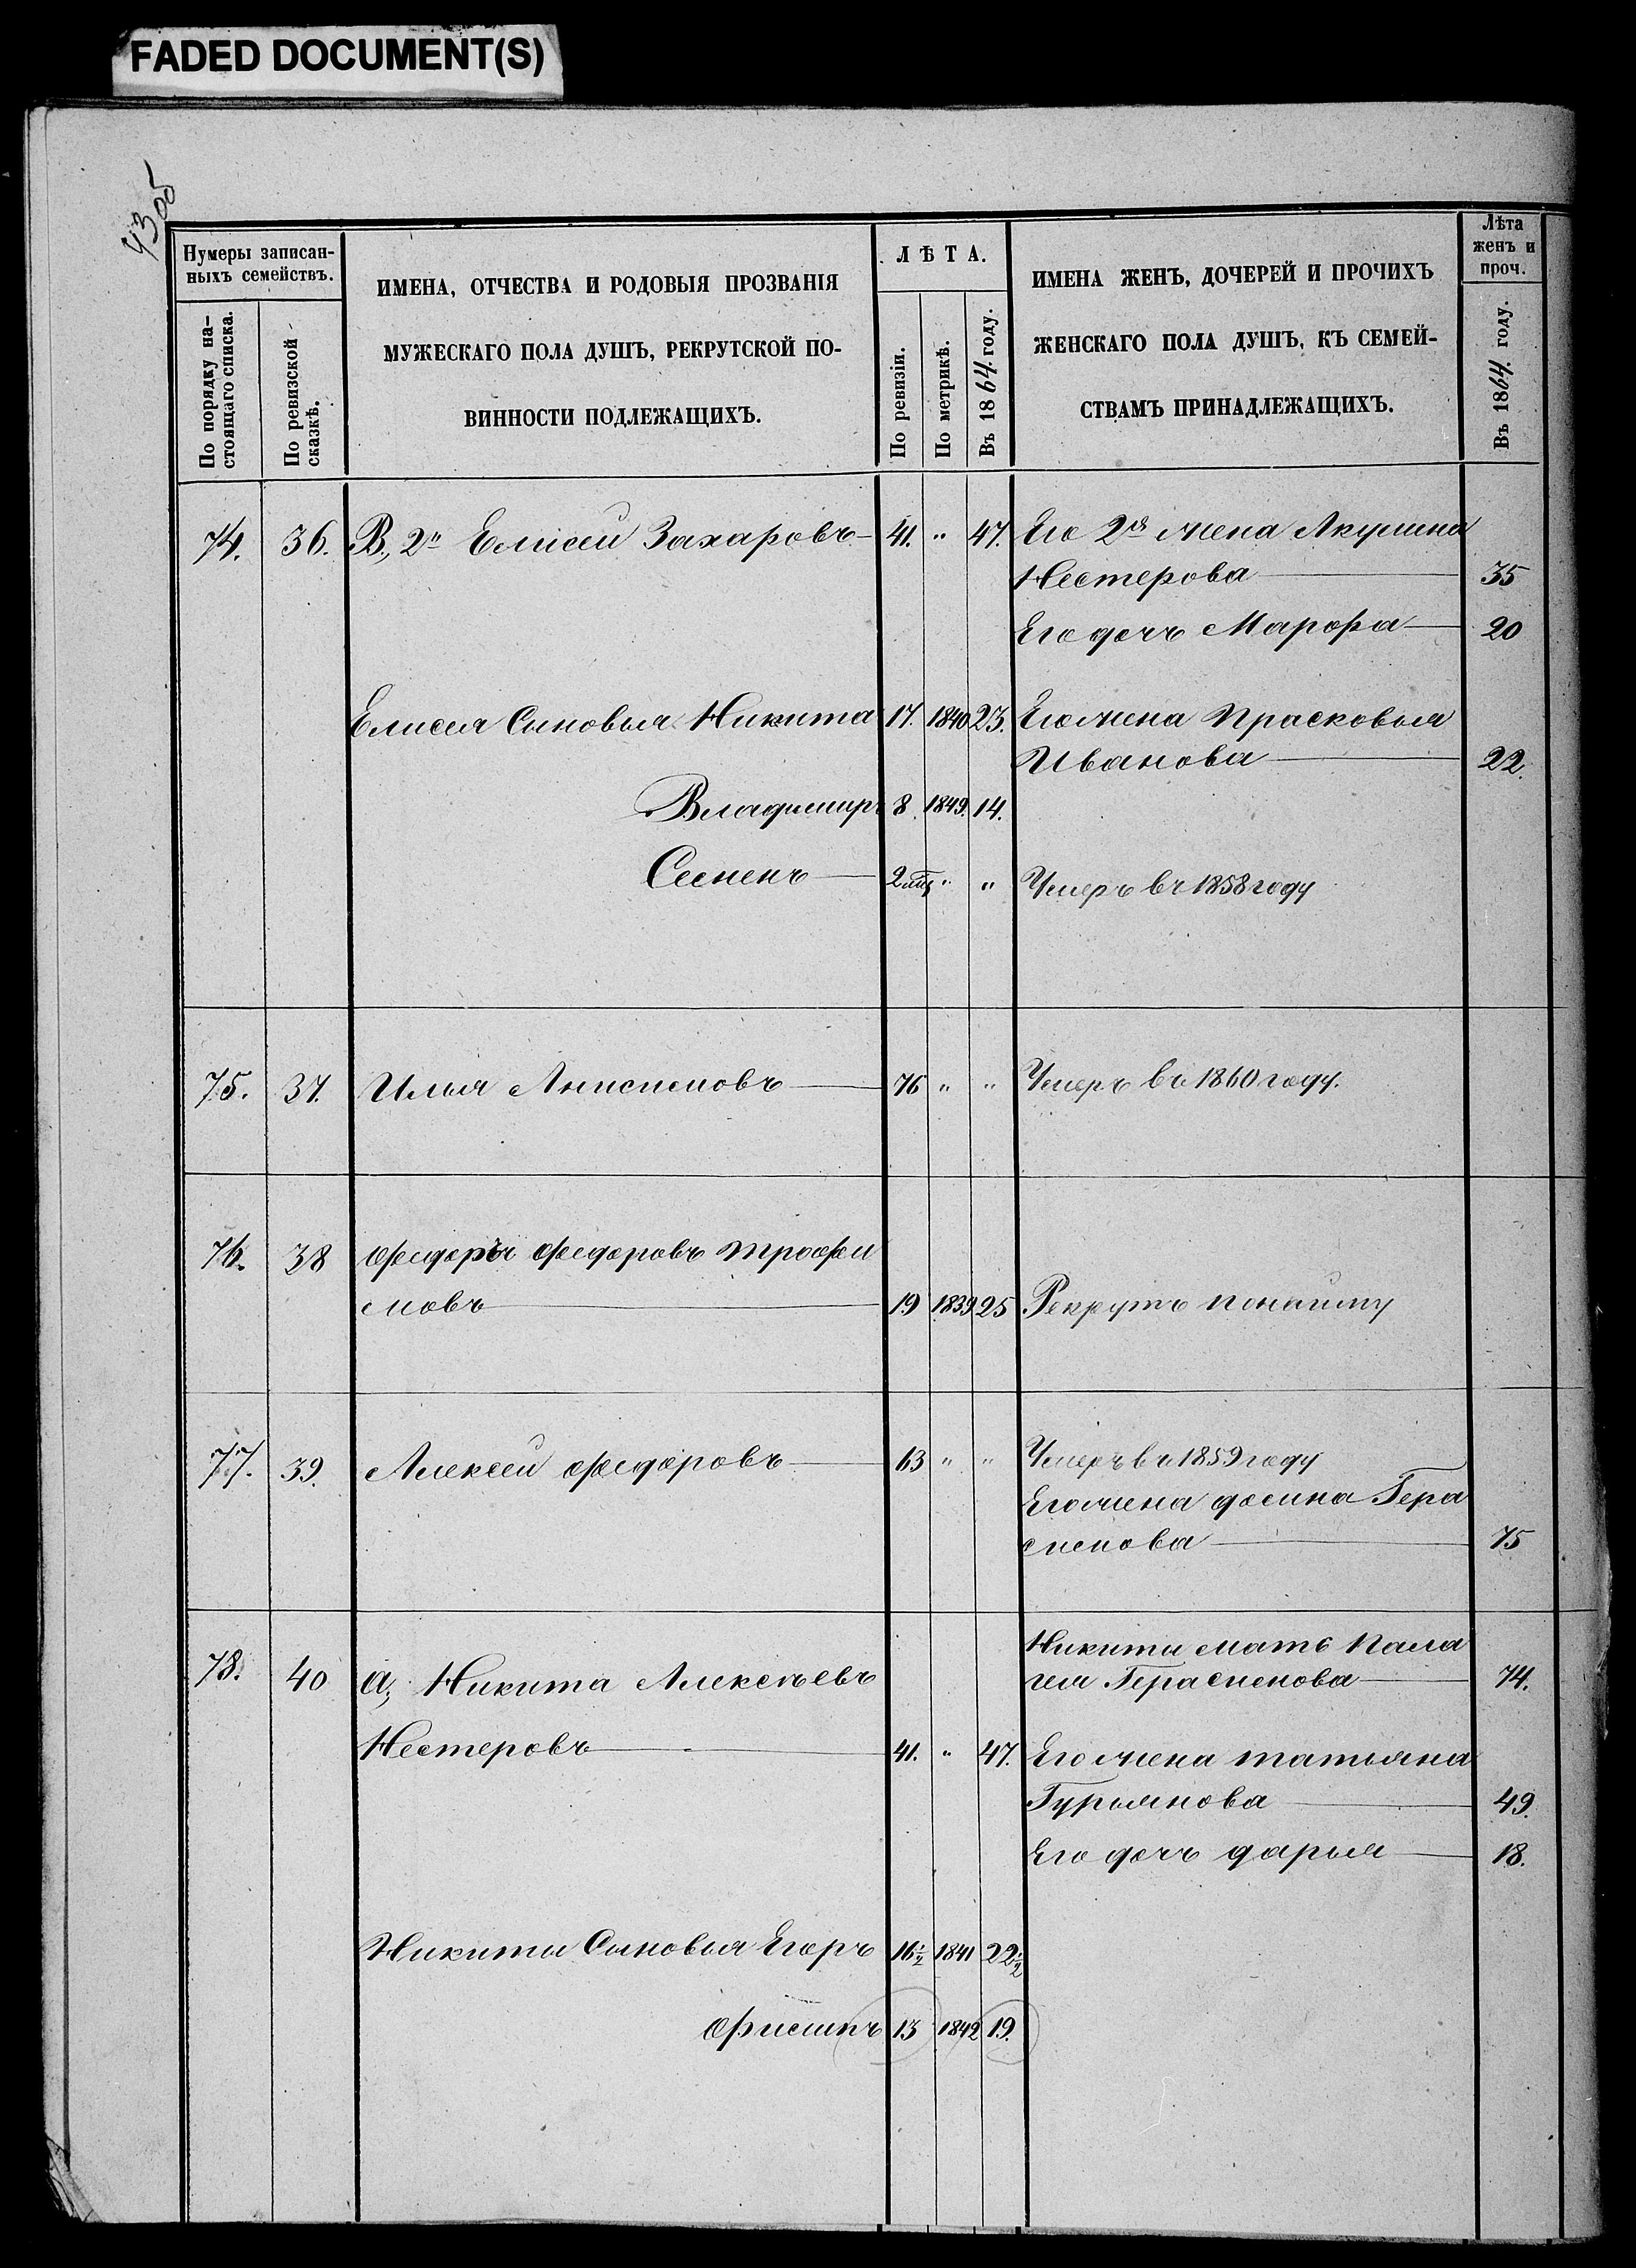 FADED DOCUMENT(S)
43об
Нумеры записан-
ныхъ семействъ.
По порядку на-
стоящаго списка.
По ревизской
сказкѣ.
ИМЕНА, ОТЧЕСТВА И РОДОВЫЯ ПРОЗВАНІЯ
МУЖЕСКАГО ПОЛА ДУШЪ, РЕКРУТСКОЙ ПО-
ВИННОСТИ ПОДЛЕЖАЩИХЪ.
ЛѢТА.
По ревизіи.
По метрикѣ.
Въ 1864. году.
ИМЕНА ЖЕНЪ, ДОЧЕРЕЙ И ПРОЧИХЪ
ЖЕНСКАГО ПОЛА ДУШЪ, КЪ СЕМЕЙ-
СТВАМЪ ПРИНАДЛЕЖАЩИХЪ.
Лѣта
женъ и
проч.
Въ 1864. году.
74. 36. В, 2й Елисей Захаровъ 41. " 47. Его 2я жена Акулина
Нестерова 35
Его дочь Марфа 20
Елисея Сыновья Никита 17. 1840 23. Его жена Прасковья
Иванова 22.
Владимиръ 8. 1849. 14.
Семенъ 2 мц " " Умеръ въ 1858 году
75. 37. Илья Анисимовъ 76 " " Умеръ въ 1860 году.
76. 38 Федоръ Федоровъ Трофи
мовъ 19 1839 25 Рекрутъ по найму
77. 39. Алексей Федоровъ 63 " " Умеръ въ 1859 году
Его жена Гера
симова 75
78. 40 а, Никита Алексѣевъ
Никиты мать Пала
гея Герасимова 74.
Нестеровъ 41. " 47. Его жена Татьяна
Гурьянова 49.
Его дочь Дарья 18.
Никиты Сыновья Егоръ 16½ 1841 22½
13 1842 19.